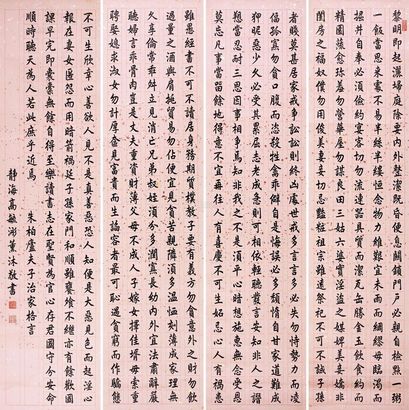 黎明即起灑掃庭除要內外整潔既昏便息關鎖門戶必親自檢點一粥
一飯當思來處不易半絲半縷恒念物力維艱宜未雨而綢繆毋臨渴而
掘井自奉必須儉約宴客切勿流連器具質而潔瓦缶勝金玉飲食約而
精園蔬愈珍羞勿營華屋勿謀良田三姑六婆實淫盜之媒婢美妾嬌非
閨房之福奴僕勿用俊美妻妾切忌豔粧祖宗雖遠祭祀不可不誠子孫
者賤莫甚居家戒爭訟訟則終凶處世戒多言言多必失勿恃勢力而凌
偪孤寡勿貪口腹而恣殺牲禽乖僻自是悔誤必多頹惰自甘家道難成
狎昵惡少久必受其累屈志老成急則可相依輕聽發言安知非人之譖
愬當忍耐三思因事相爭焉知非我之不是須平心暗想施惠無念受恩
莫忘凡事當留餘地得意不宜再往人有喜慶不可生妒忌心人有禍患
雖愚經書不可不讀居身務期質樸教子要有義方勿貪意外之財勿飲
過量之酒與肩挑貿易勿佔便宜見貧苦親鄰須多溫恤刻薄成家理無
久享倫常乖舛立見消亡兄弟叔姪須分多潤寡長幼內外宜法肅辭嚴
聽婦言乖骨肉豈是丈夫重資財薄父母不成人子嫁女擇佳壻毋索重
聘娶媳求淑女勿計厚奩見富貴而生諂容者最可恥遇貧窮而作驕態
不可生欣幸心善欲人見不是真善惡恐人知便是大惡見色而起淫心
報在妻女匿怨而用暗箭禍延子孫家門和順雖饔飧不繼亦有餘歡國
課早完即囊橐無餘自得至樂讀書志在聖賢為官心存君國守分安命
順時聽天為人若此庶乎近焉 朱柏廬夫子治家格言
靜海高毓浵薰沐敬書